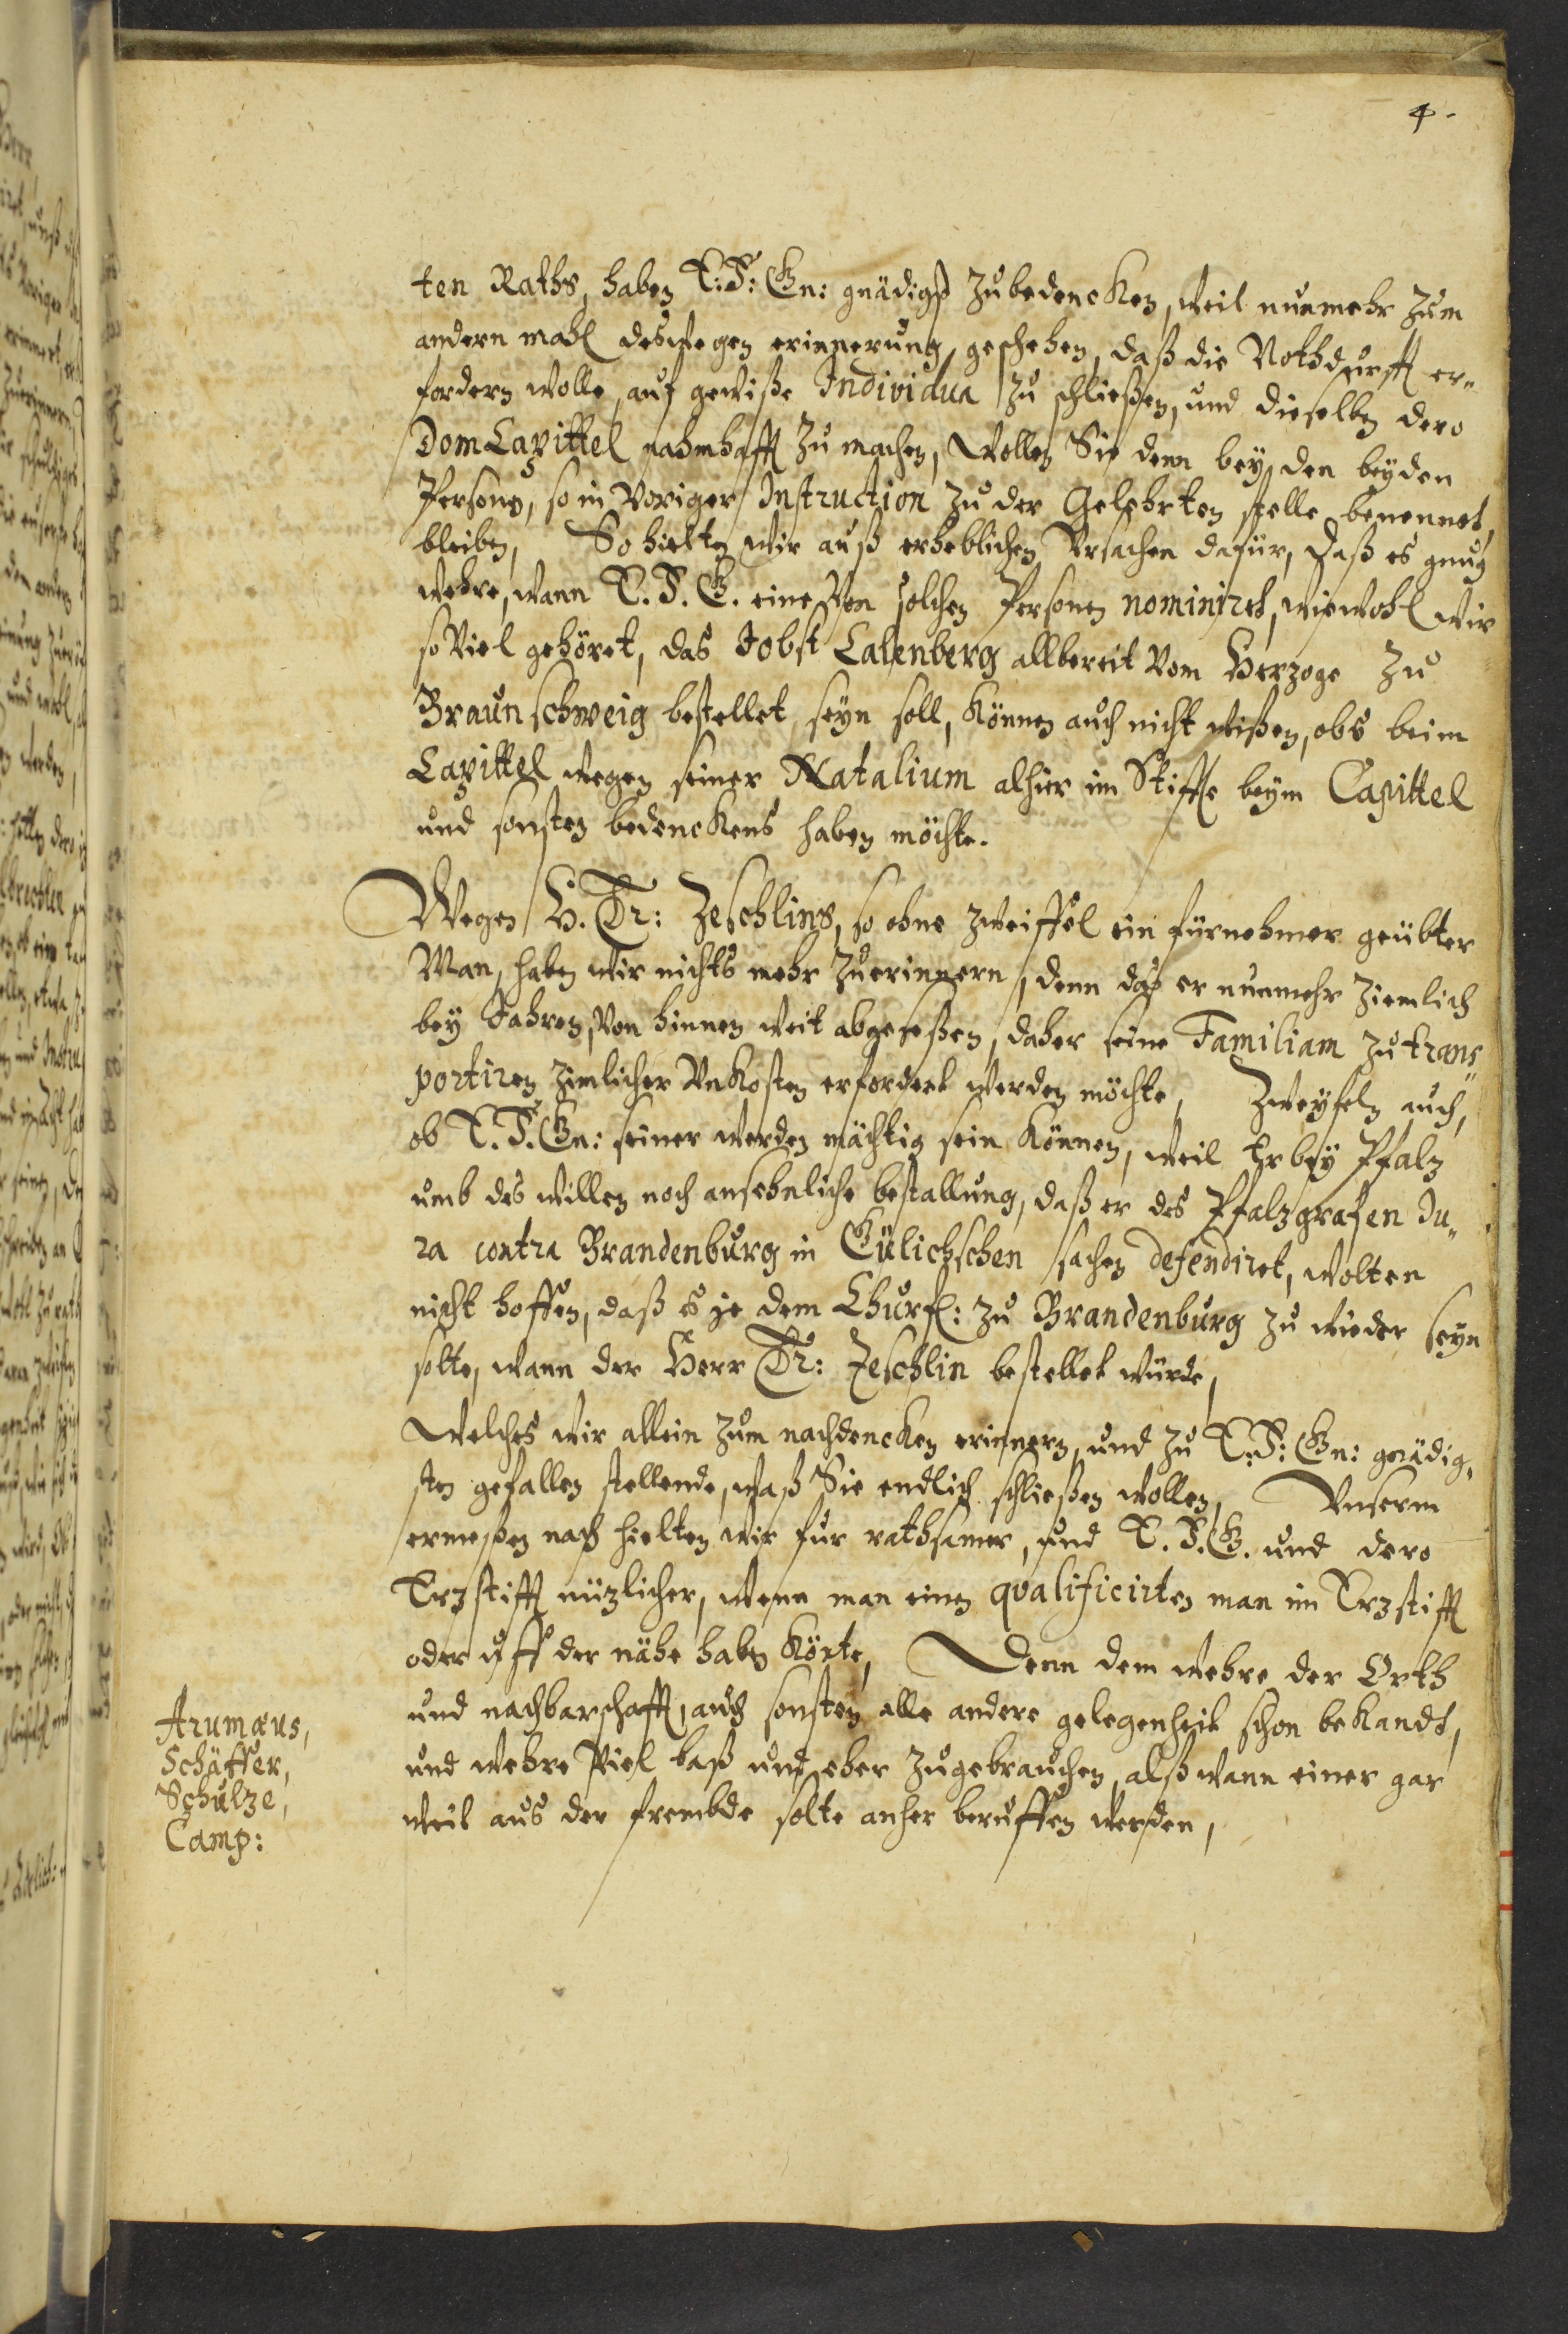 4.
ten Raths, haben E: F: Gn: gnädigst zubedencken, weil nunmehr zum
andern mahl deswegen erinnerung geschehen, daß die Nothdurfft er„
fordern wolle, auf gewiße Individua zu schließen, und dieselben dero
Dom Capittel nahmhafft zu machen, Wollen Sie denn bey den beyden
Persong, so in voriger Instruction zu der Gelehrten stelle benennet,
bleiben, So hielten wir auß erheblichen Ursachen dafür, daß es gnug
wehre, wann E. F. G. eine von solchen Personen nominiret, wiewohl wir
so viel gehöret, das Jobst Calenberg allbereit vom Herzoge zu
Braunschweig bestellet seyn soll, können auch nicht wißen, obs beim
Capittel wegen seiner Natalium alhier im Stiffte beym Capittel
und sonsten bedenckens haben möchte.
Wegen H. Dr: Zeschlins, so ohne zweiffel ein fürnehmer geübter
Man, haben wir nichts mehr zuerinnern, denn daß er nunmehr ziemlich
bey Jahren, von hinnen weit abgeseßen, daher seine Familiam zu trans„
portiren zimlicher Unkosten erfordert werden möchte, Zweyfeln auch,
ob E. F. Gn: seiner werden mächtig sein können, weil Er bey Pfalz
umb des willen noch ansehnliche bestallung, daß er des Pfalzgrafen Ju„
ra contra Brandenburg in Gülichschen sachen defendiret, wolten
nicht hoffen, daß es je dem Churf: zu Brandenburg zu wieder seyn
solte, wann der Herr Dr: Zeschlin bestellet würde,
Welches wir allein zum nachdencken erinnern, und zu E: F: Gn: gnädig„
sten gefallen stellende, waß Sie endlich schließen wollen, Unserm
ermeßen nach hielten wir fur rathsamer, und E. F. G. und dero
Erzstifft nüzlicher, wenn man einen qvalificirten man im Erzstifft
oder uff der nähe haben könte, Denn dem wehre der Orth
und nachbarschafft, auch sonsten alle andere gelegenheit schon bekandt,
und wehre viel baß und eher zugebrauchen, alß wann einer gar
weit aus der frembde solte anher beruffen werden,
Arumæus,
Schäffer,
Schulze,
Camp: